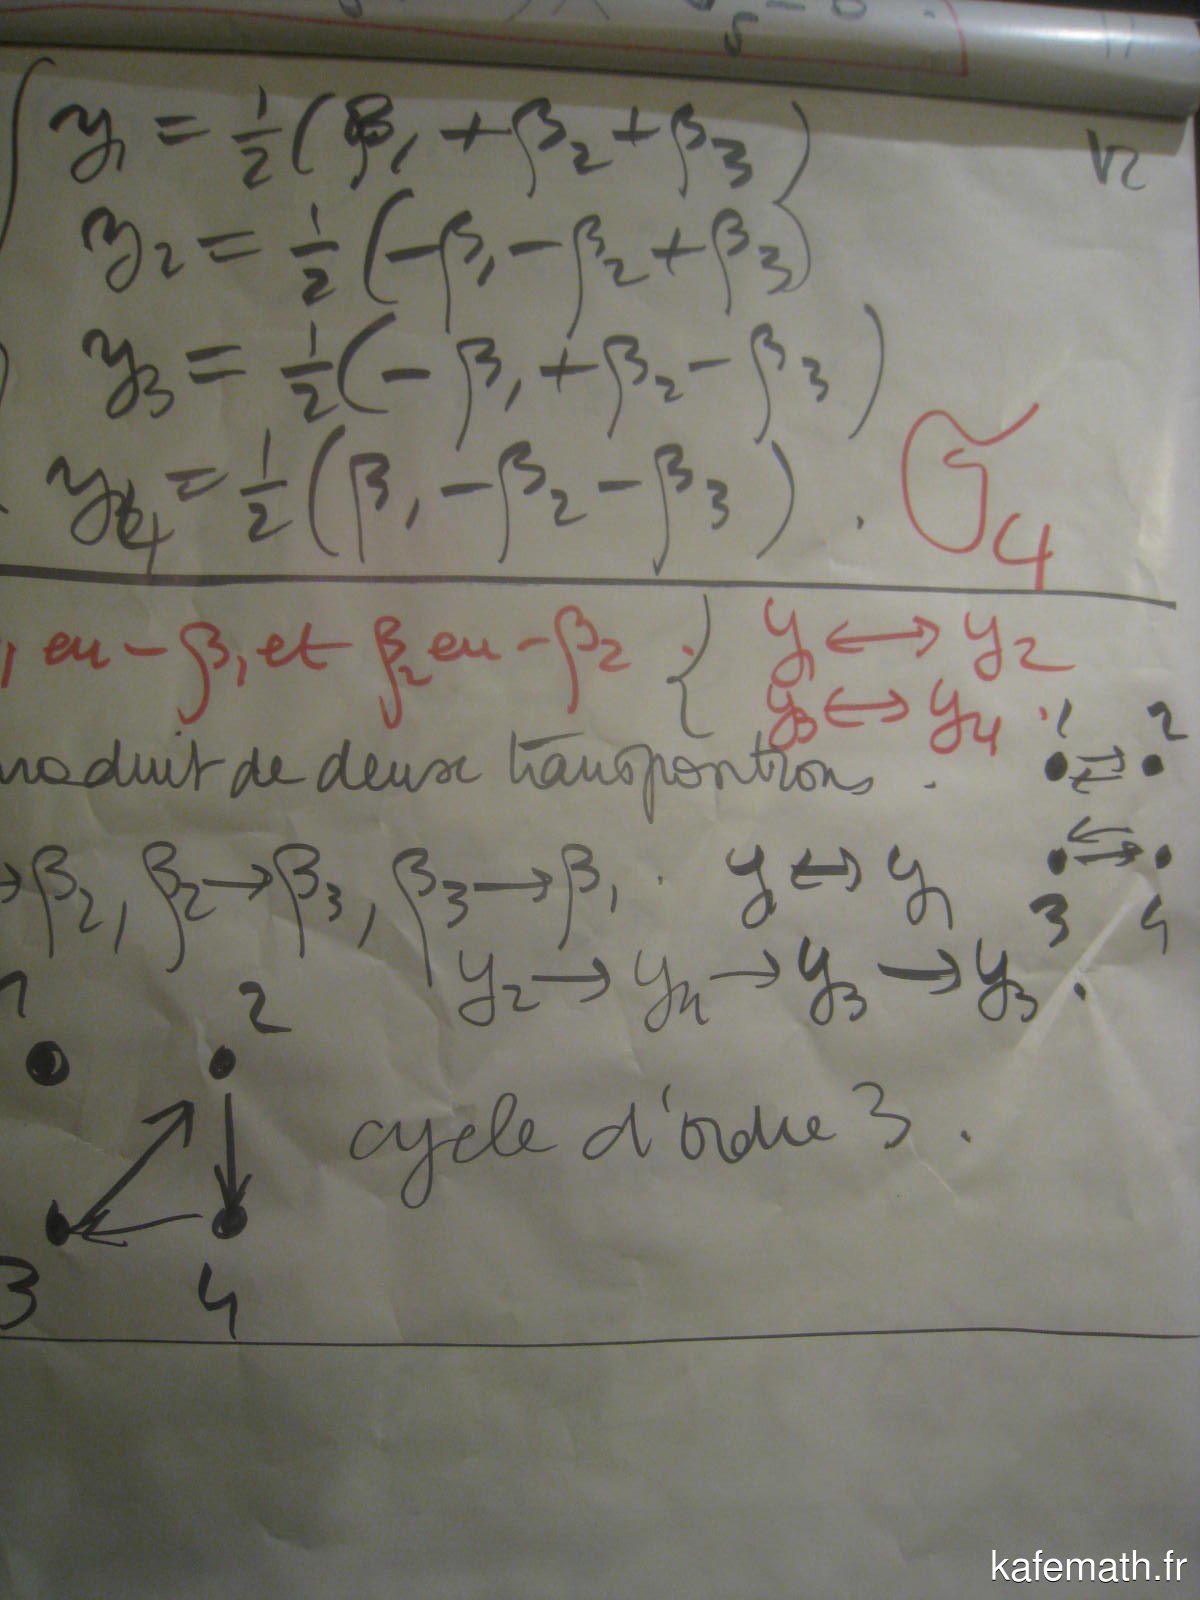 y₁ = 1/2 (β₁ + β₂ + β₃)
y₂ = 1/2 (-β₁ - β₂ + β₃)
y₃ = 1/2 (-β₁ + β₂ - β₃)
y₄ = 1/2 (β₁ - β₂ - β₃) .
₁ en -β₁ et β₂ en -β₂ . { y₁ ↔ y₂
y₃ ↔ y₄ .
roduit de deux transpositions .
1 2
3 4
→ β₂, β₂ → β₃, β₃ → β₁ . y ↔ y₁
y₂ → y₄ → y₃ → y₃ .
1 2
cycle d'ordre 3 .
3 4
kafemath.fr